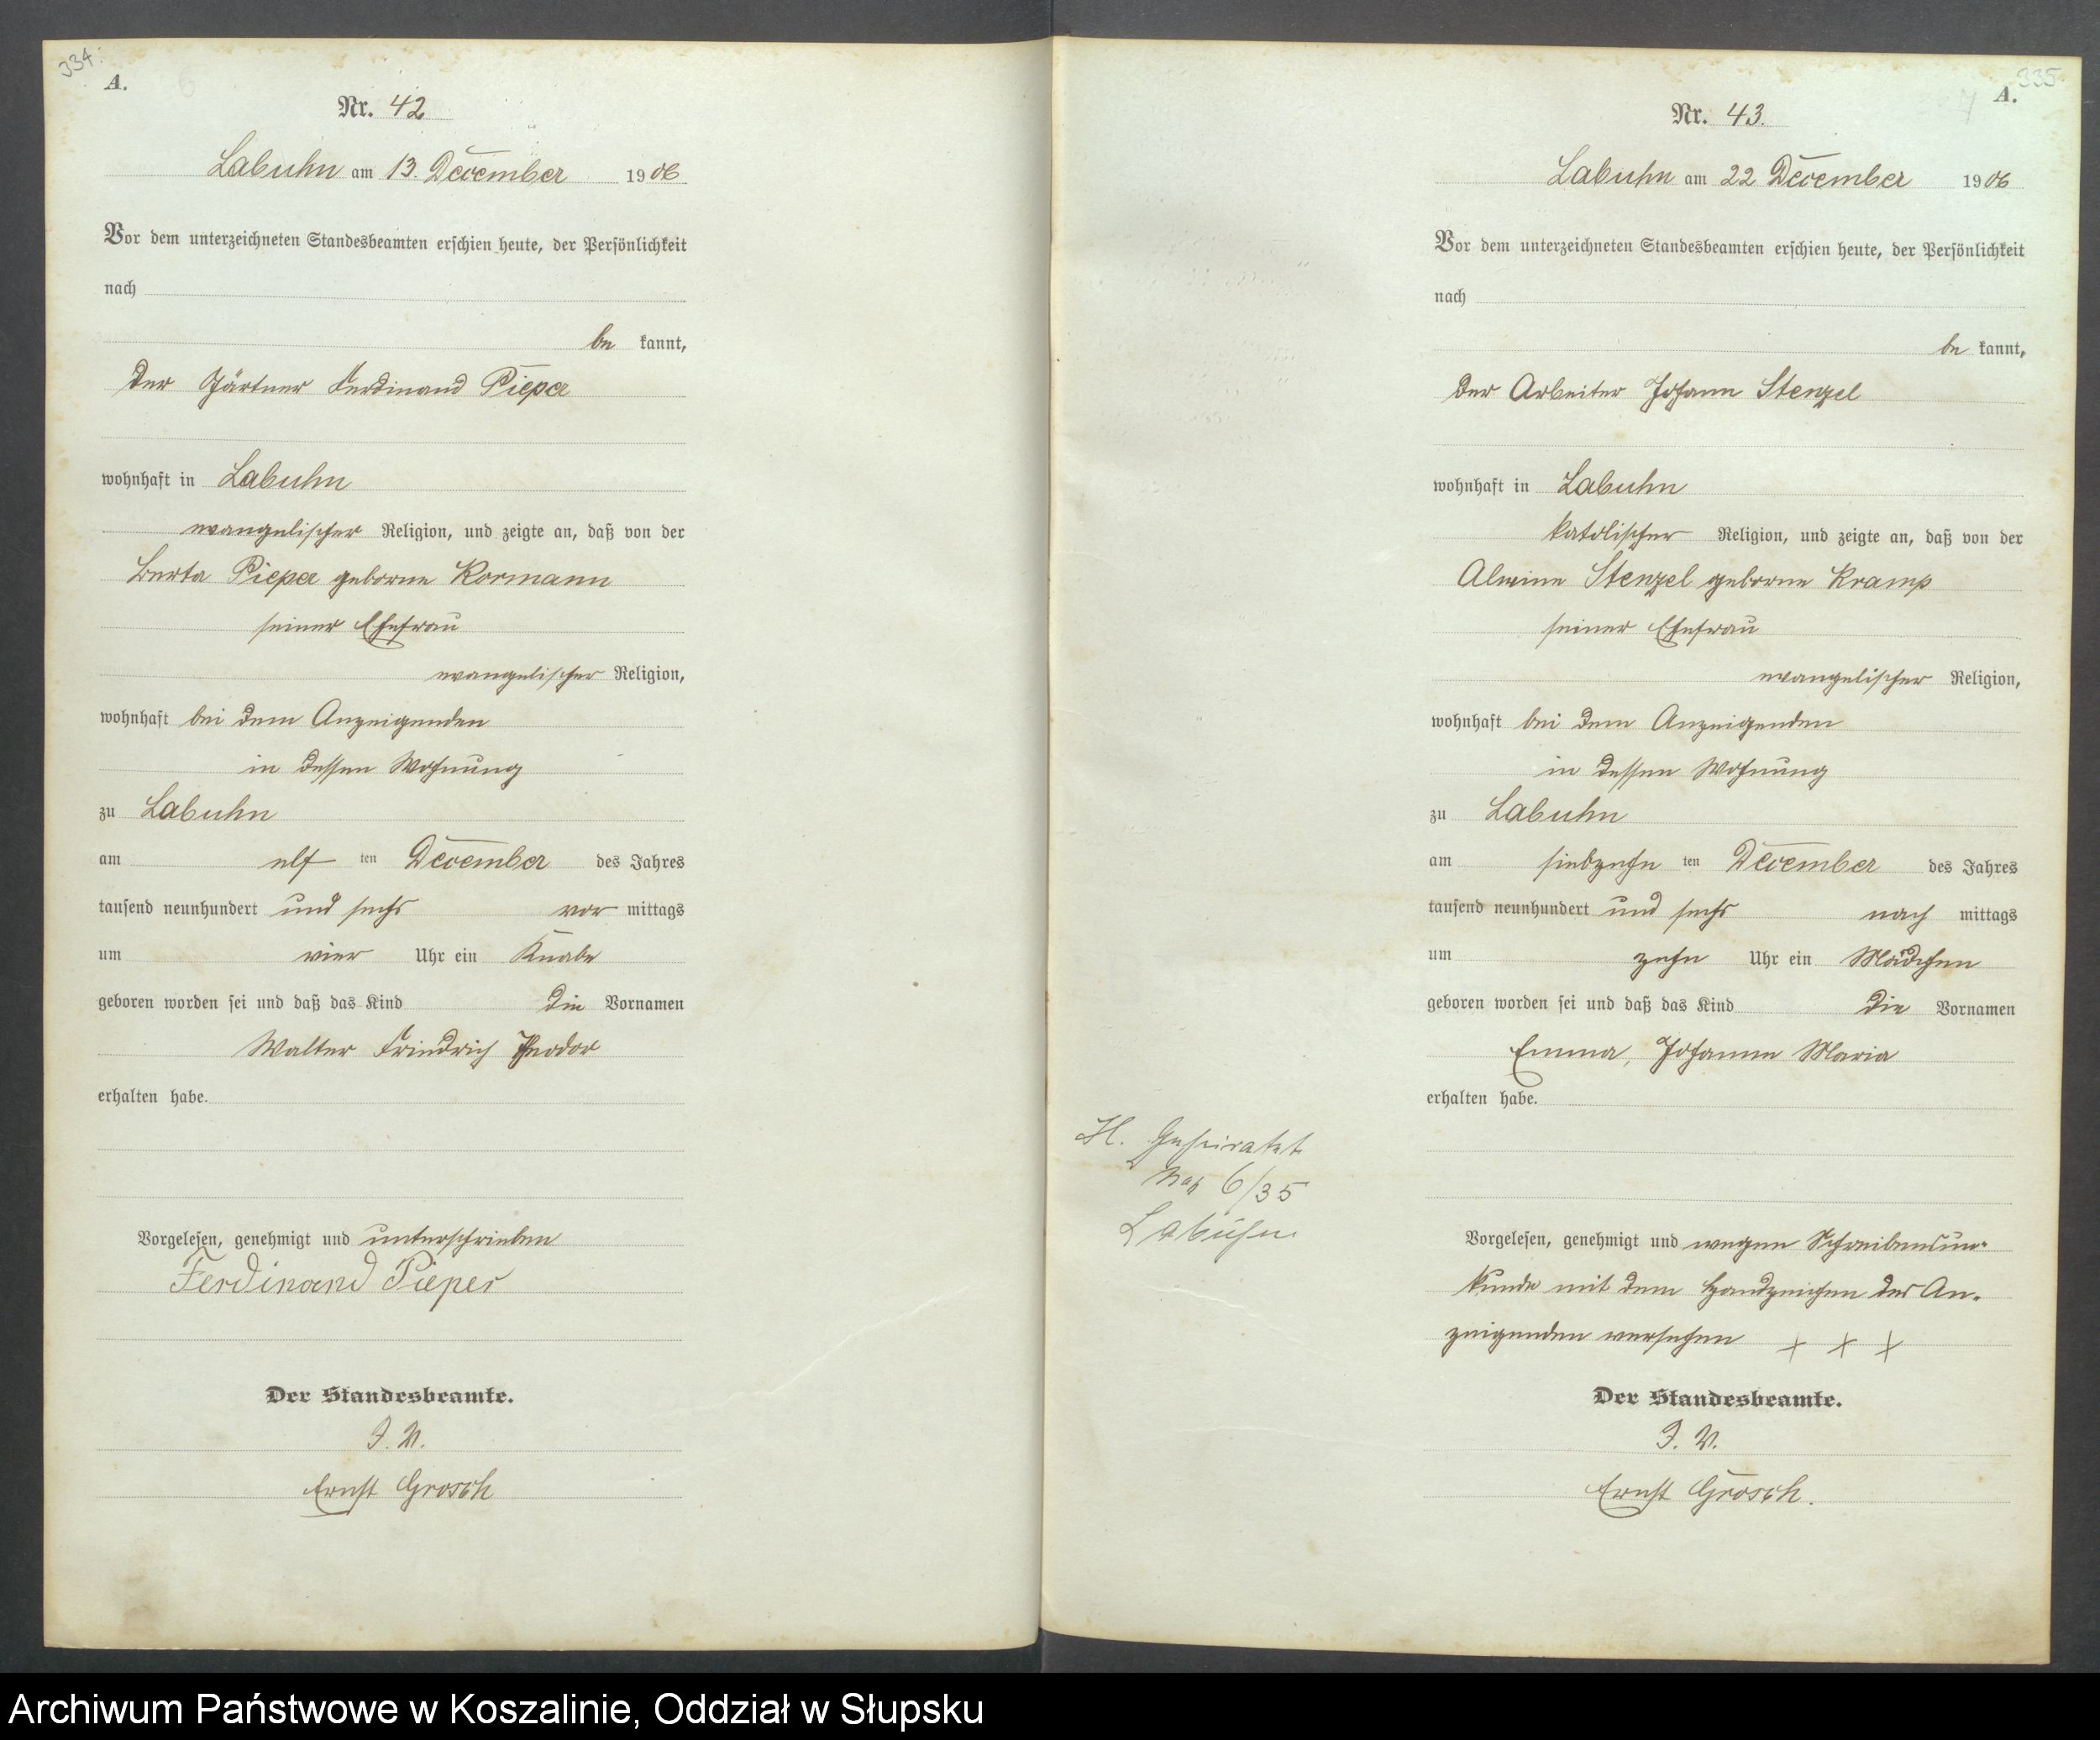 334.
A.
Nr. 42
Labuhn am 13. December 1906
Vor dem unterzeichneten Standesbeamten erschien heute, der Persönlichkeit
nach
be kannt,
der Gärtner Ferdinand Pieper
wohnhaft in Labuhn
evangelischer Religion, und zeigte an, daß von der
Berta Pieper geborne Kormann
seiner Ehefrau
evangelischer Religion,
wohnhaft bei dem Anzeigenden
in dessen Wohnung
zu Labuhn
am elf ten December des Jahres
tausend neunhundert und sechs vor mittags
um vier Uhr ein Knabe
geboren worden sei und daß das Kind die Vornamen
Walter Friedrich Theodor
erhalten habe.
Vorgelesen, genehmigt und unterschrieben
Ferdinand Pieper
Der Standesbeamte.
I. V.
Ernst Grosch
335
A.
Nr. 43.
Labuhn am 22 December 1906
Vor dem unterzeichneten Standesbeamten erschien heute, der Persönlichkeit
nach
be kannt,
der Arbeiter Johann Stenzel
wohnhaft in Labuhn
katolischer Religion, und zeigte an, daß von der
Alwine Stenzel geborne Kramp
seiner Ehefrau
evangelischer Religion,
wohnhaft bei dem Anzeigenden
in dessen Wohnung
zu Labuhn
am siebzehn ten December des Jahres
tausend neunhundert und sechs nach mittags
um zehn Uhr ein Mädchen
geboren worden sei und daß das Kind die Vornamen
Emma, Johanne Maria
erhalten habe.
H. Geheiratet
6/35
Labuhn
Vorgelesen, genehmigt und wegen Schreibensun-
kunde mit dem Handzeichen des An-
zeigenden versehen + + +
Der Standesbeamte.
I. V.
Ernst Grosch.
Archiwum Państwowe w Koszalinie, Oddział w Słupsku